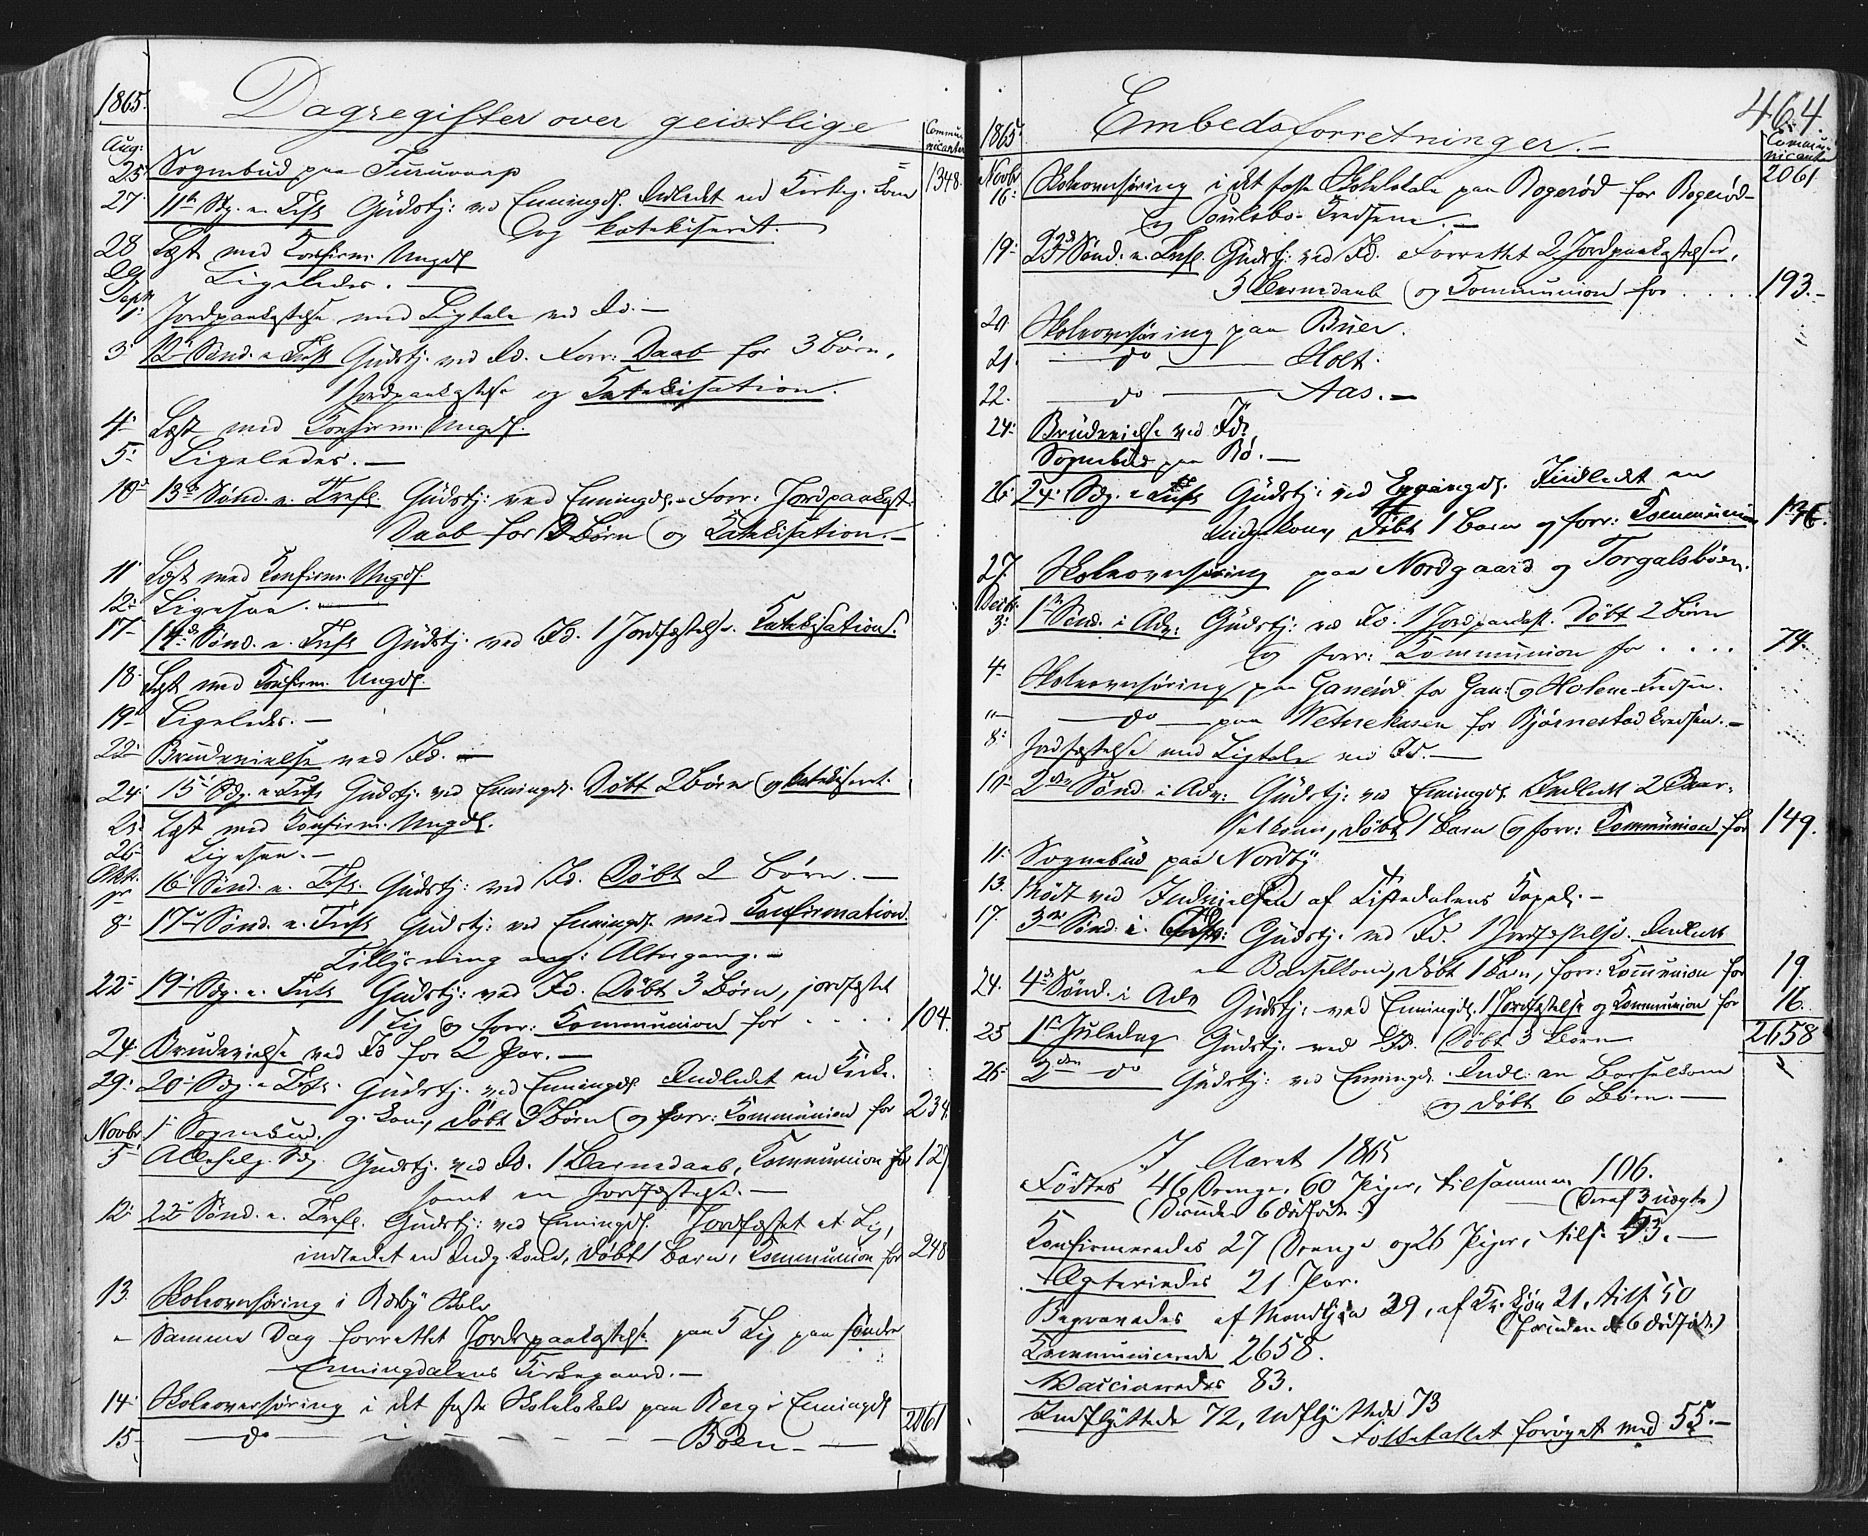 1865. Dagregister over geistlige
Communicanter
Aug:
25 Sognebud paa 1348
27 11te Sdg. e. Tref Gudstj: ved Enningd. Indledet en Kirkeg. Kone
og katekiseret.
28 Læst med Confirm. Ungd.
29 Ligeledes.
Septr
1. Jordpaakastelse med Ligtale ved Id.
3 12te Sønd. e. Tref. Gudstj. ved Id. Forr: Daab for 3 Børn,
1 Jordpaakastelse og Katekisation.
4 Læst med Konfirm. Ungd.
5 Ligeledes.
10 13de Sønd. e. Tref. Gudstj: ved Enningd. Forr: Jordpaakast.
Daab for 2 Børn og Katekisation.
11 Læst med Konfirm. Ungd.
12 Ligesaa.
17 14de Sønd. e. Tref. Gudstj. ved Id. 1 Jordfæstelse. Katekisation.
18 Læst med Konfirm. Ungd.
19 Ligeledes.
22 Brudevielse ved Id.
24 15de Sdg. e. Tref. Gudstj. ved Enningd. Døbt 2 Børn og katekiseret.
25 Læst med Konfirm. Ungd.
26 Ligesaa.
Oktbr
1 16de Sønd. e. Tref. Gudstj: ved Id. Døbt 2 Børn.
8 17de Sønd. e. Tref. Gudstj: ved Enningd. med Konfirmation.
Tillysning ang: Altergang.
22 19de Sdg. e. Tref. Gudstj: ved Id. Døbt 3 Børn, jordfæstet
1 Lig og forr: Kommunion for 104.
24. Brudevielse ved Id for 2 Par.
29. 20de Sdg. e. Tref. Gudstj. ved Enningd. Indledet en Kirke-
g. Kone, døbt 3 Børn og forr: Kommunion for 234.
Novbr 1 Sognebud.
5 Allehelg. Sdg. Gudstj. ved Id. 1 Barnedaab, Kommunion for 127
samt en Jordfæstelse.
12: 22de Sønd. e. Tref. Gudstj: ved Enningd. Jordfæstet et Lig,
indledet en Indg. Kone, døbt 1 Barn, Kommunion for 248
13 Skoleovhøring i Berby Skole
" Samme Dag forrettet Jordspaakastelse paa 5 Lig paa søndre
Enningdalens Kirkegaard.
14: Skoleoverhøring i det faste Skolelokale paa Berg i Enningd 2061
15 do Bøen
464.
1865. Embedsforretninger.
Communicanter
2061
Novbr
16: Skoleoverhøring i det faste Skolelokale paa Bogerød for Bogerød-
og Kredsene.
19: 23de Sønd. e. Tref. Gudstj: ved Id. Forrettet 2 Jordpaakastelser,
3 Barnedaab og Kommunion for 193.
20. Skoleoverhøring paa Buer.
21. do Holt.
22. do Aas.
24: Brudevielse ved Id.
Sognebud paa Bø.
26: 24: Sdg. e Tref. Gudstj: ved Enningd. Indledet en
Indg.kone, Døbt 1 Barn og forr: Kommunion 136.
27. Skoleoverhøring paa Nordgaard og Torgalsbøen.
Decbr.
3: 1ste Sønd. i Adv: Gudstj: ved Id. 1 Jordpaakast. Døbt 2 Børn
og forr: Kommunion for 74.
4. Skoleoverhøring paa for Gan: og Holene Kredsen.
" do paa for Bjørnestad Kredsen.
8: Jordfæstelse med Ligtale ved Id.
10: 2den Sønd: i Adv: Gudstj: ved Enningd. Indledt 2 Bar-
selkoner, døbt 1 Barn og forr: Kommunion for 149.
11: Sognebud paa Nordby
13. Mødt ved Indvielsen af Tistedalens Kapel.
17. 3die Sønd: i Adv: Gudstj. ved Id. 1 Jordfæstelse. Indledt
en Barselkone, døbt 1 Barn, forr: Kommunion for 19.
24. 4de Sønd. i Adv Gudstj: ved Enningd. 1 Jordfæstelse og Kommunion for 16.
25 1ste Juledag Gudstj. ved Id. Døbt 3 Børn 2658
26: 2den do Gudstj: ved Enningd. Indl: en Barselkone
og døbt 6 Børn.
I Aaret 1865
Fødtes 46 Drenge, 60 Piger, tilsammen 106.
(Desuden 6 dødfødte.) (Deraf 3 uægte)
Konfirmeredes 27 Drenge og 26 Piger, tils. 53.
Ægteviedes 21 Par.
Begravedes af Mandkjøn 29, af Kv. Kjøn 21, tils. 50
(foruden de 6 dødfødte)
Kommunicerede 2658.
Vaccineredes 83.
Indflyttede 72, Udflyttede 73
Folketallet forøget med 55.